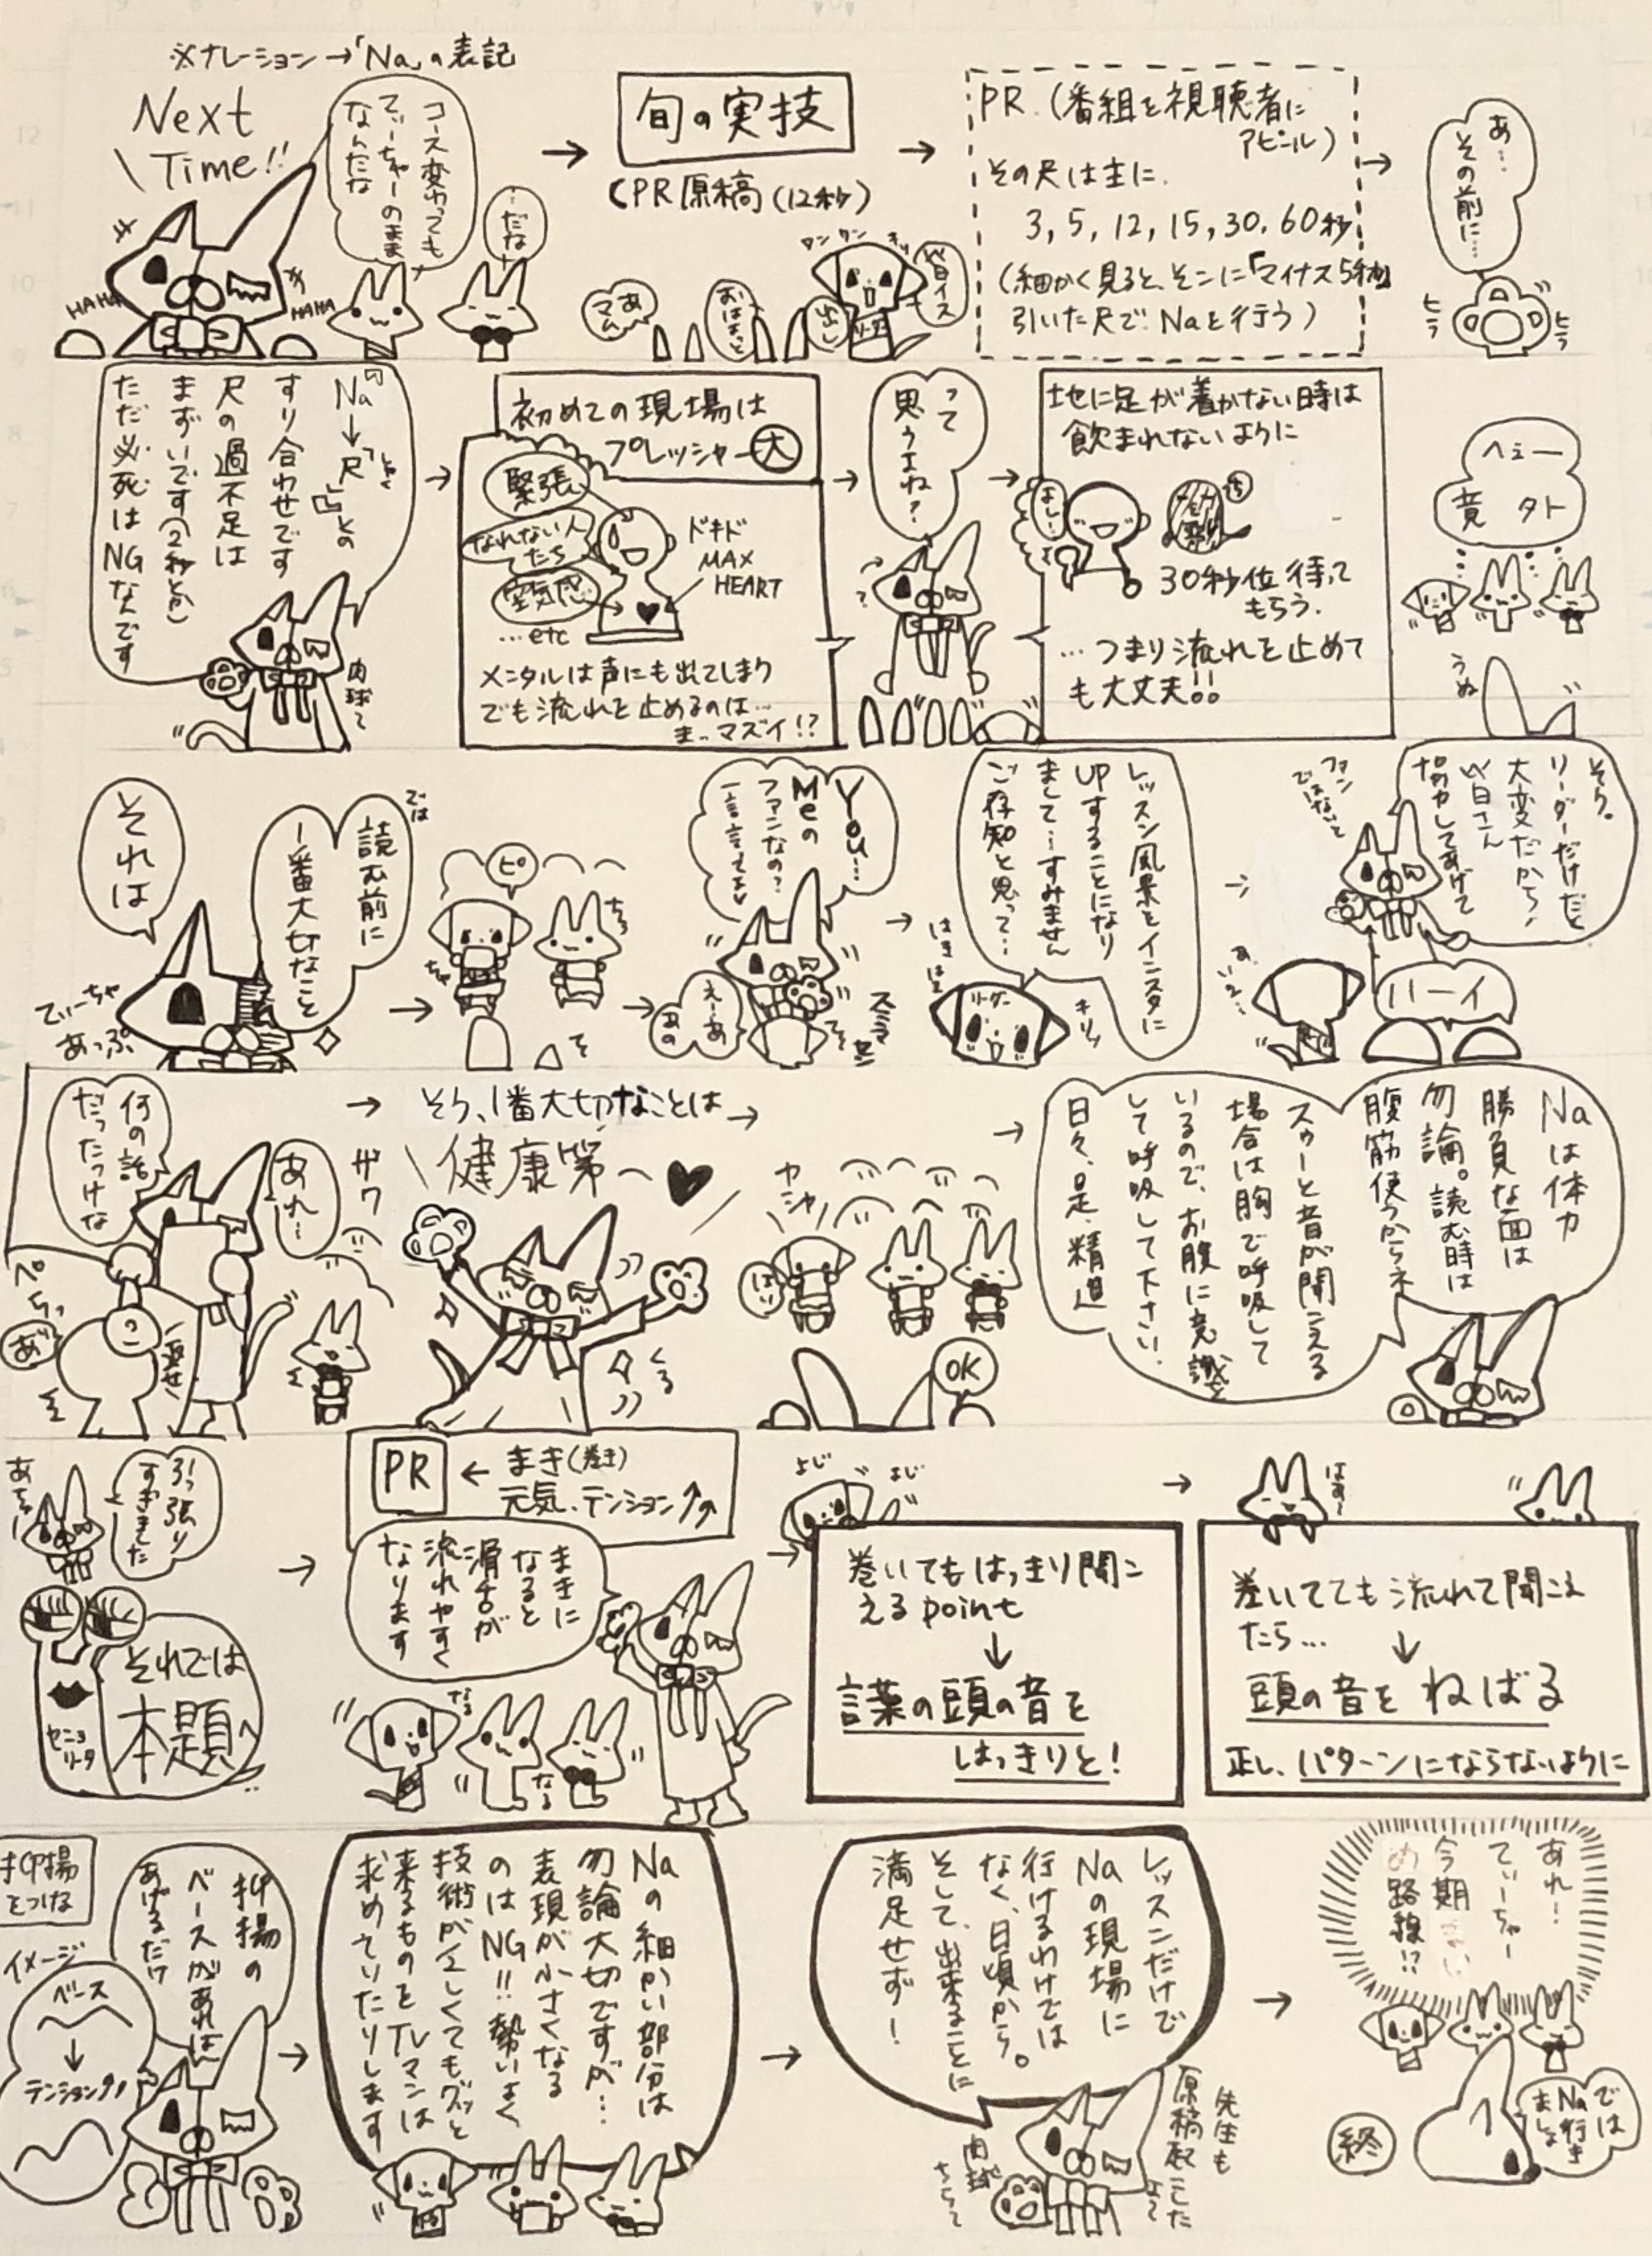 ※ナレーション→「Na」の表記
Next
Time!!
HAHA
HAHA
コース変わっても
てぃーちゃーのまま
なんだな
…だな
旬の実技
(PR原稿(12秒)
ワンワン
あ
マム
おはよっと
出し
PR (番組を視聴者に
アピール)
その尺は主に.
3, 5, 12, 15, 30, 60秒
(細かく見ると、そこに「マイナス5秒」
引いた尺で、Naを行う)
あ…
その前に…
ヒラ
ヒラ
Naの
↓
「尺」との
すり合わせです
尺の過不足は
まずいです(2秒とか)
ただ必死はNGなんです
肉球て
初めての現場は
プレッシャー大
緊張
なれない人
たち
空気感
…etc
ドキド
MAX
HEART
メンタルは声にも出てしまう
でも流れを止めるのは…
まっマズイ!?
って
思うよね?
地に足が着かない時は
飲まれないように
よし…
30秒位待って
もらう.
…つまり流れを止めて
も大丈夫!!
へぇー
意外
うぬ
それは
てぃーちゃ
あっぷ
では
読む前に
1番大切なこと
ピ
You…
Meの
ファンなの?
一言言ってよ
えーあ
あの
スミマセン
レッスン風景をインスタに
UPすることになり
まして…すみません
ご存知と思って…
はきはき
リーダー
キリッ
そう。
リーダーだけだと
大変だから!
皆さん
協力してあげて
ファン
ではないと
ハーイ
何の話
だったっけな
あれ〜
ザワ
ペちっ
あ゛
返せ
そう、1番大切なことは
健康第一
くる
カシャ
はい
OK
Naは体力
勝負な面は
勿論。読む時は
腹筋使うからネ
スゥーと音が聞こえる
場合は胸で呼吸して
いるので、お腹に意識を
して呼吸して下さい.
日々、是、精進
あちゃー
引っ張り
すぎました
それでは
本題へ
セニョ
リータ
PR
← まき(巻き)
元気、テンション↑↑
まきに
なると
滑舌が
流れやすく
なります
なる
なる
よじ
よじ
巻いてもはっきり聞こ
えるpoint
↓
言葉の頭の音を
はっきりと!
はぁ〜
巻いてても流れて聞こえ
たら…
↓
頭の音をねばる
正し、パターンにならないように
抑揚
をつけな
イメージ
ベース
↓
テンション↑
抑揚の
ベースがあれば
あげるだけ
Naの細かい部分は
勿論大切ですが…
表現が小さくなる
のはNG!!勢いよく
技術が正しくてもグッと
来るものをTVマンは
求めていたりします
レッスンだけで
Naの現場に
行けるわけでは
なく、日頃から。
そして、出来ることに
満足せず!
先生も
原稿起こした
肉球
ちらっ
あれ!
てぃーちゃー
今期
め路線!?
では
Na行き
ましょ
終